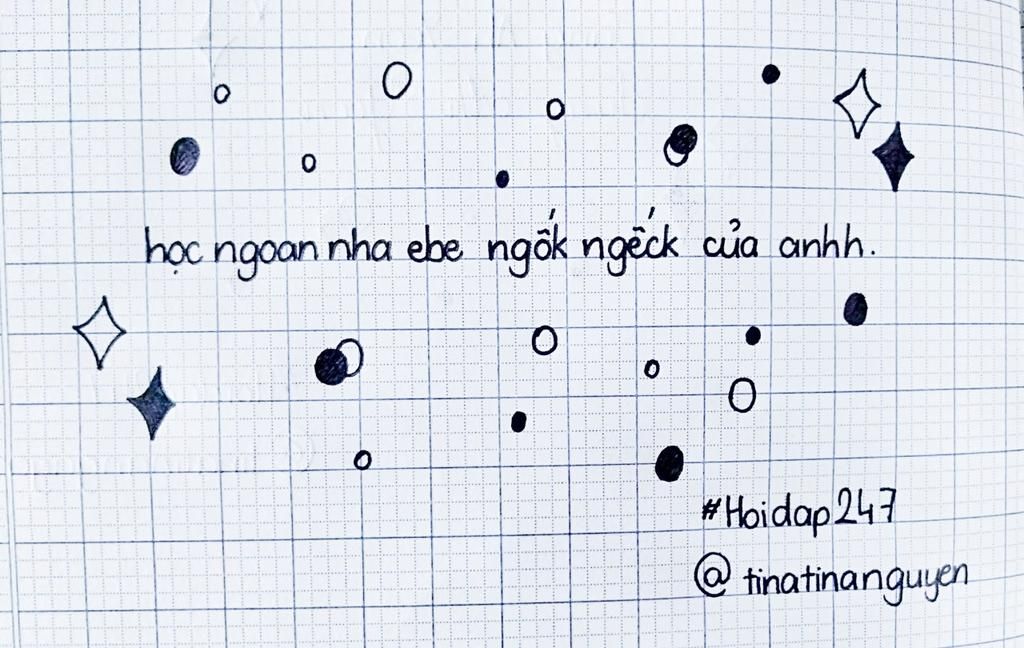 học ngoan nha ebe ngốk ngếck của anhh.
#Hoidap247
@ tinatinanguyen